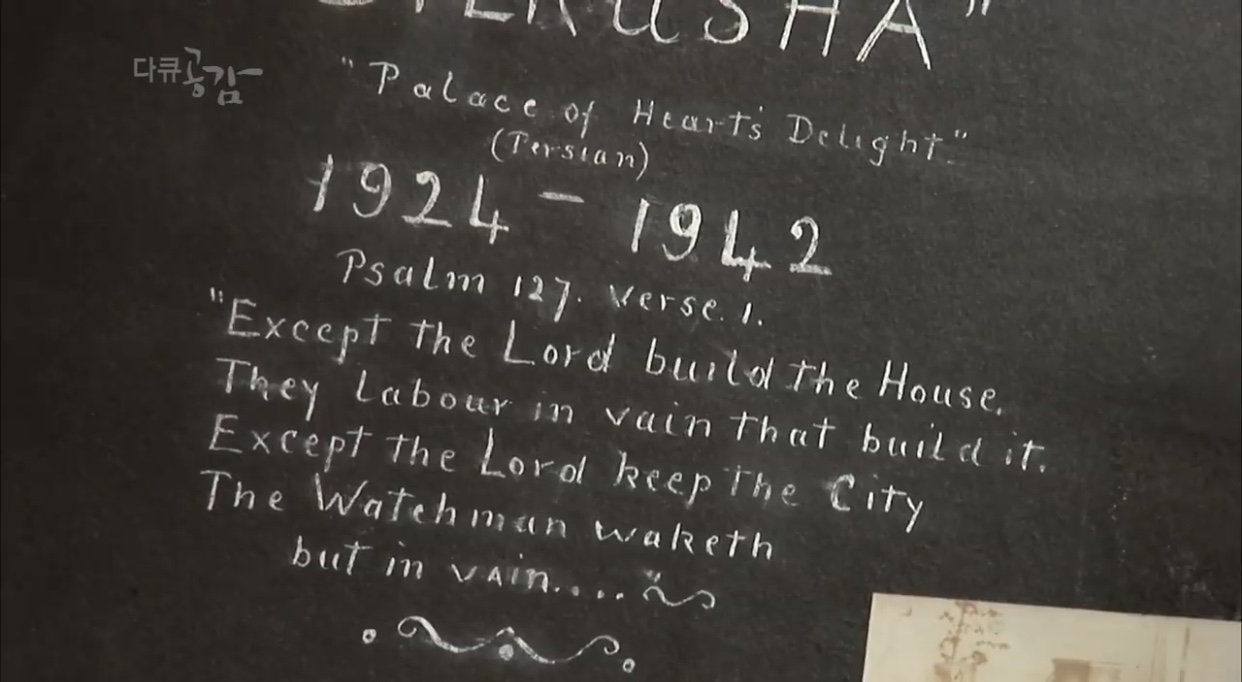 "Palace of Heart's Delight"
(Persian)
1924 – 1942
Psalm 127. verse. 1.
"Except the Lord build the House.
They Labour in vain that build it.
Except the Lord keep the City
The Watchman waketh
but in vain...."
다큐공감